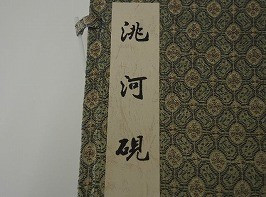 洮河硯